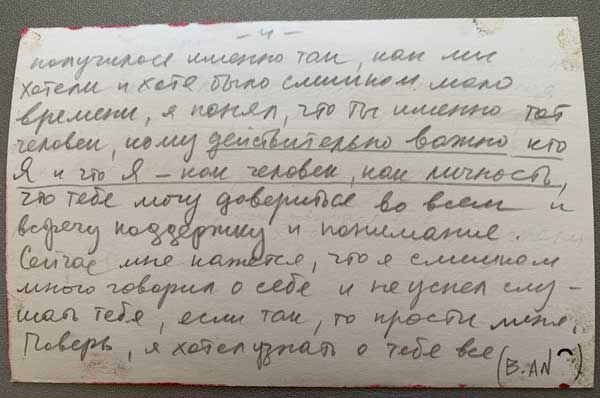 - 4 -
получилось именно так, как мы
хотели и хотя было слишком мало
времени, я понял, что Ты именно тот
человек, кому действительно важно кто
Я и что Я – как человек, как личность,
что тебе могу довериться во всем и
встречу поддержку и понимание.
Сейчас мне кажется, что я слишком
много говорил о себе и не успел слу-
шать тебя, если так, то прости меня.
Поверь, я хотел узнать о тебе все
(B.AN